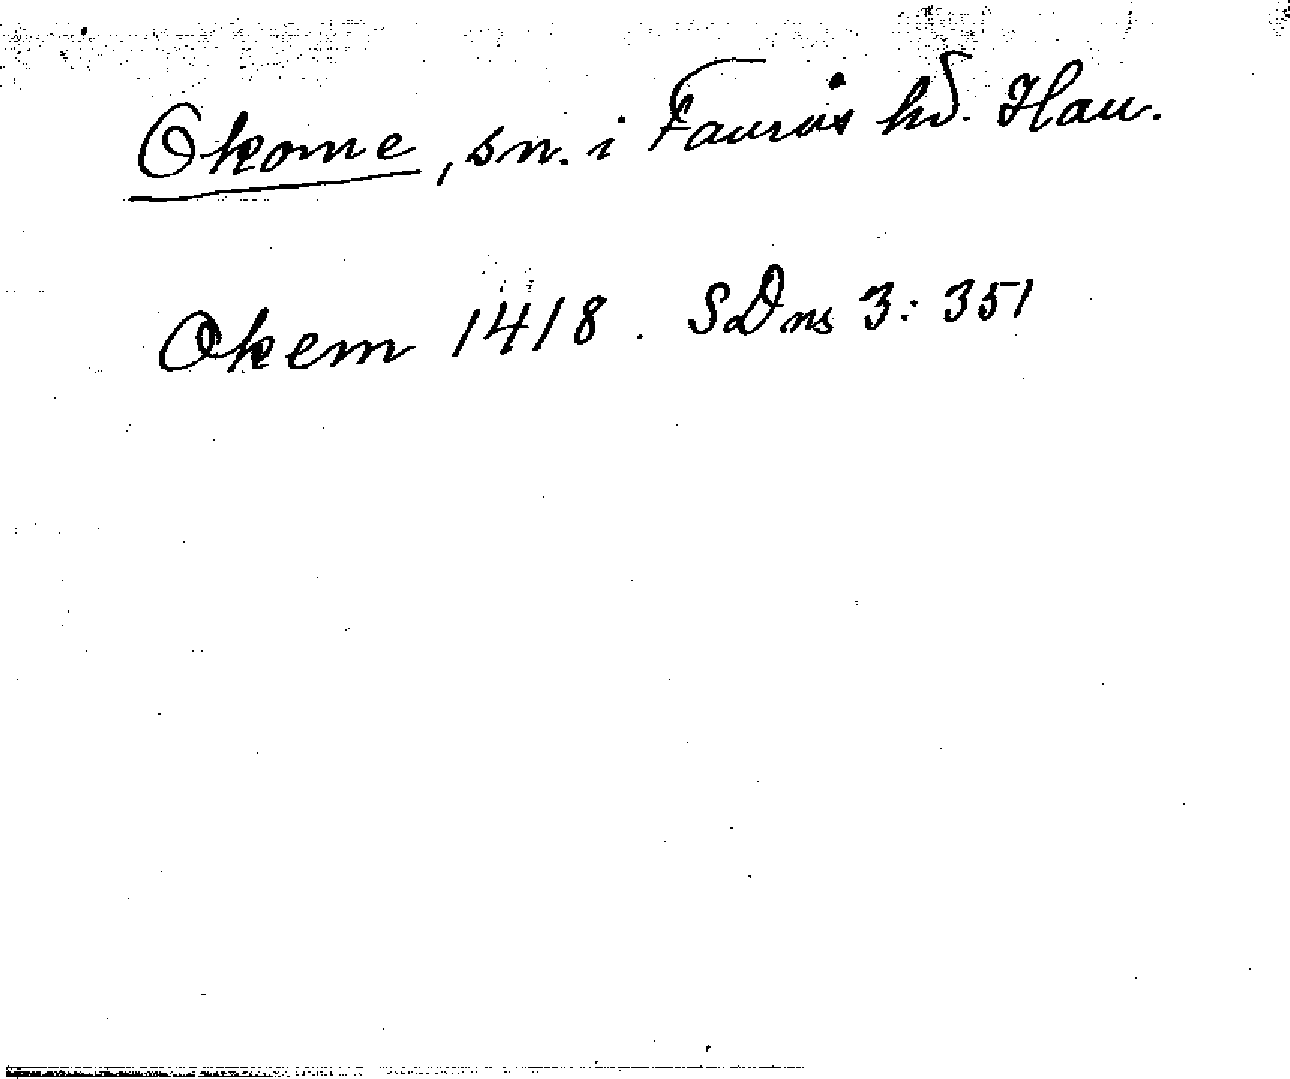 Okome, sn. i Faurås hd. Hall.
Okem 1418. SDns 3: 351